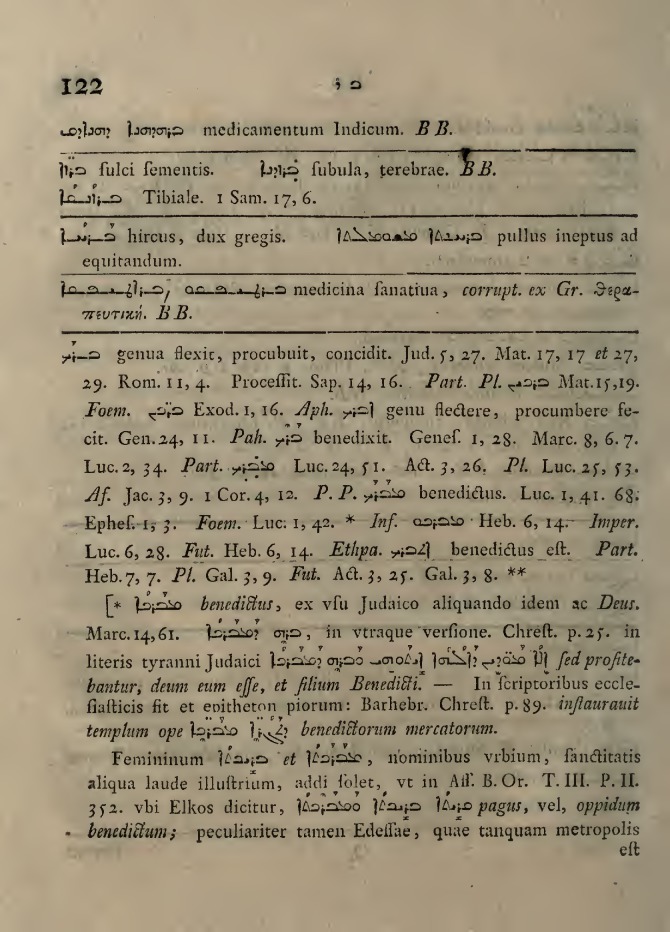 122 ܒ ܪ
medicamentum Indicum. B B.
fulci ſementis. ſubula, terebrae. B B.
Tibiale. 1 Sam. 17, 6.
hircus, dux gregis. pullus ineptus ad
equitandum.
medicina ſanatiua, corrupt. ex Gr. θερα-
πευτική. B B.
ܒܪܟ genua flexit, procubuit, concidit. Jud. 5, 27. Mat. 17, 17 et 27,
29. Rom. 11, 4. Proceſſit. Sap. 14, 16. Part. Pl. ܒܪܟܝܢ Mat. 15, 19.
Foem. ܒܪ̈ܟܢ Exod. 1, 16. Aph. ܐܒܪܟ genu flectere, procumbere fe-
cit. Gen. 24, 11. Pah. ܒܪܟ benedixit. Geneſ. 1, 28. Marc. 8, 6. 7.
Luc. 2, 34. Part. ܡܒܪܟ Luc. 24, 51. Act. 3, 26. Pl. Luc. 25, 53.
Af. Jac. 3, 9. 1 Cor. 4, 12. P. P. ܡܒܪܟ benedictus. Luc. 1, 41. 68.
Epheſ. 1, 3. Foem. Luc. 1, 42. * Inf. ܡܒܪܟܘ Heb. 6, 14. Imper.
Luc. 6, 28. Fut. Heb. 6, 14. Ethpa. ܐܬܒܪܟ benedictus eſt. Part.
Heb. 7, 7. Pl. Gal. 3, 9. Fut. Act. 3, 25. Gal. 3, 8. **
[* ܡܒܪܟܐ benedictus, ex vſu Judaico aliquando idem ac Deus.
Marc. 14, 61. ܒܪܗ ܕܡܒܪܟܐ, in vtraque verſione. Chreſt. p. 25. in
literis tyranni Judaici ܐܠܐ ܡܘܕܝܢ ܕܐܠܗܐ ܐܝܬܘܗܝ ܘܒܪܗ ܕܡܒܪܟܐ ſed profite-
bantur, deum eum eſſe, et filium Benedicti. — In ſcriptoribus eccle-
ſiaſticis fit et epitheton piorum: Barhebr. Chreſt. p. 89. inſtaurauit
templum ope ܕܬܓܪ̈ܐ ܡܒܪ̈ܟܐ benedictorum mercatorum.
Femininum ܒܪܝܟܬܐ et ܡܒܪܟܬܐ, nominibus vrbium, ſanctitatis
aliqua laude illuſtrium, addi ſolet, vt in Aſſ. B. Or. T. III. P. II.
352. vbi Elkos dicitur, ܩܪܝܬܐ ܒܪܝܟܬܐ ܘܡܒܪܟܬܐ pagus, vel, oppidum
benedictum; peculiariter tamen Edeſſae, quae tanquam metropolis
eſt